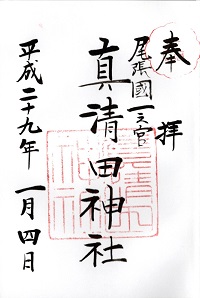 奉拝
尾張國一之宮
真清田神社
平成二十九年
一月四日